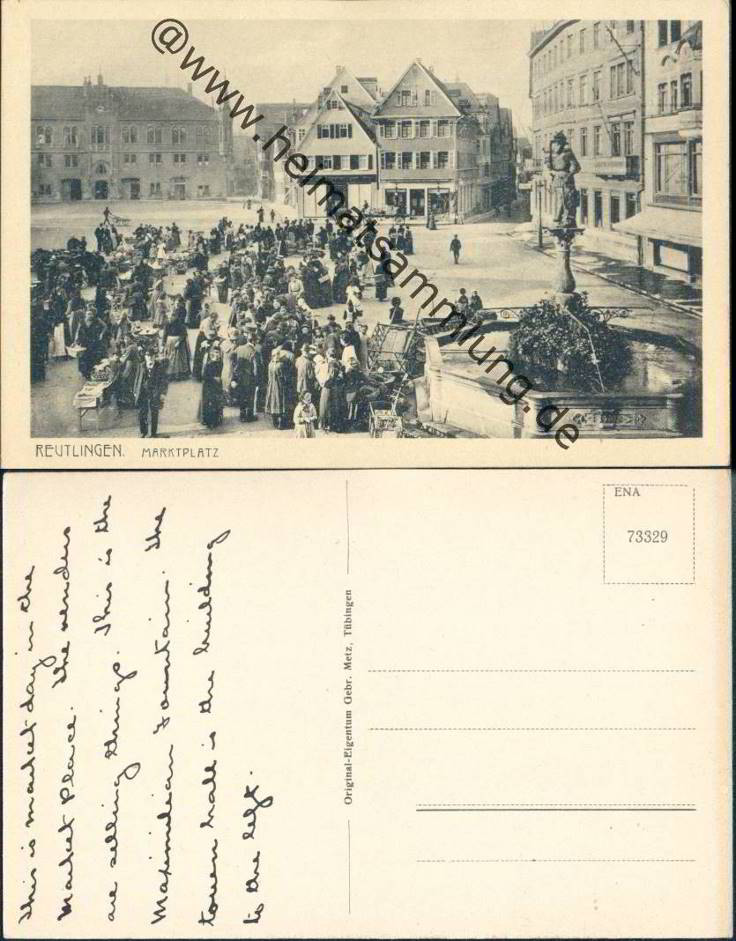 @www.heimatsammlung.de
REUTLINGEN. MARKTPLATZ
This is market day in the
Market Place. The venders
are selling things. This is the
Maximilian Fountain. The
town hall is the building
to the left.
Original-Eigentum Gebr. Metz, Tübingen
ENA
73329